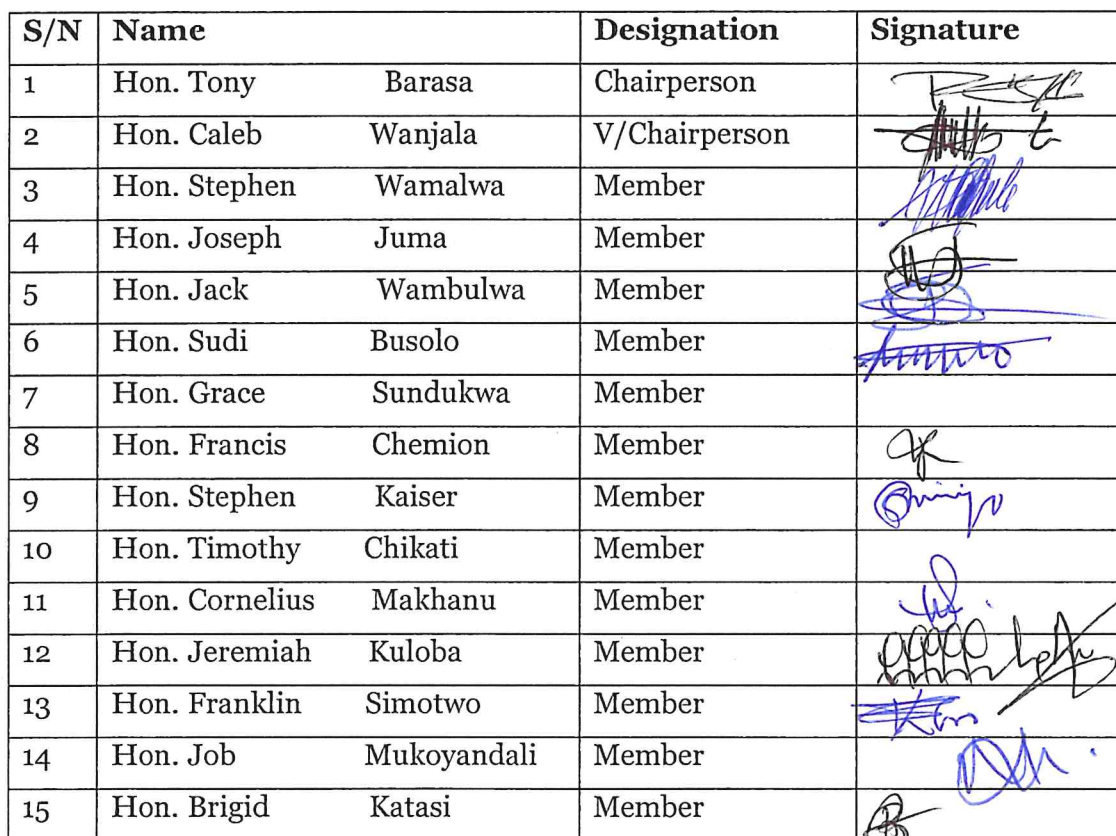 S/N Name Designation Signature
1 Hon. Tony Barasa Chairperson
2 Hon. Caleb Wanjala V/Chairperson
3 Hon. Stephen Wamalwa Member
4 Hon. Joseph Juma Member
5 Hon. Jack Wambulwa Member
6 Hon. Sudi Busolo Member
7 Hon. Grace Sundukwa Member
8 Hon. Francis Chemion Member
9 Hon. Stephen Kaiser Member
10 Hon. Timothy Chikati Member
11 Hon. Cornelius Makhanu Member
12 Hon. Jeremiah Kuloba Member
13 Hon. Franklin Simotwo Member
14 Hon. Job Mukoyandali Member
15 Hon. Brigid Katasi Member